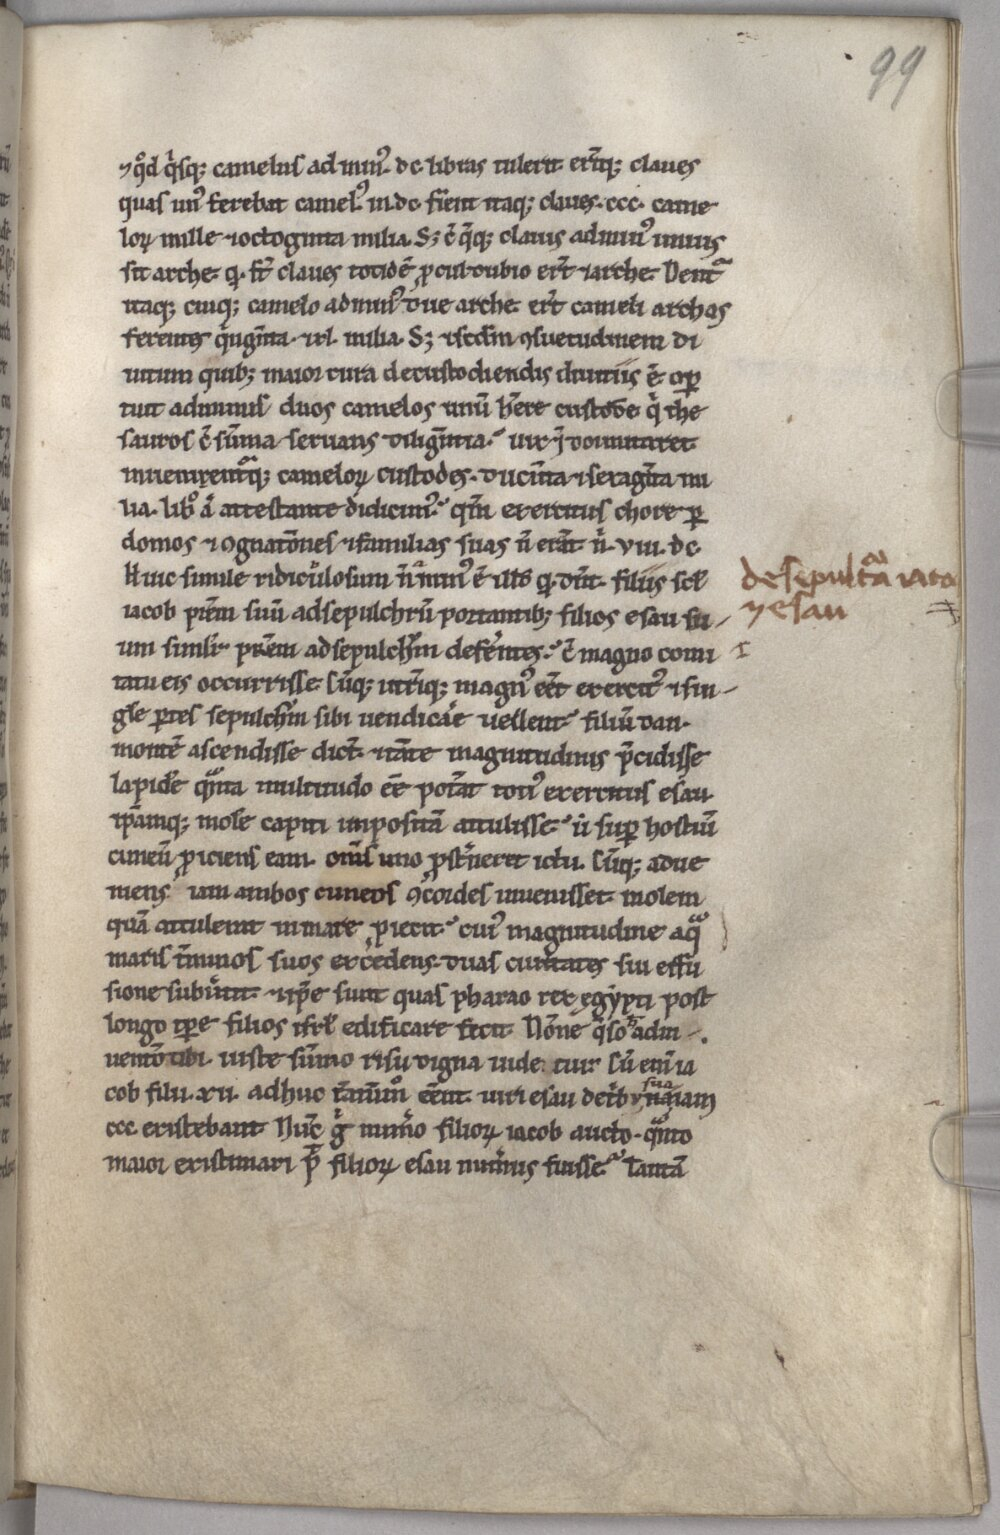 99
⁊ qͦd qͥsq; camelus ad minꝰ .dc. libras tulerit erūtq; claues
quas unꝰ ferebat camelꝰ .iii.dc. fient itaq; claues .ccc. came
loꝝ mille ⁊ octoginta milia. S; c̄ q̄q; clauis ad minꝰ unius
sit arche q. st̄ claues totidē ꝓcul dubio er̄t ⁊ arche. Dentᷓ
itaq; cuiq; camelo ad minꝰ due arche. er̄t cameli archas
ferentes qͥngīta .⁊xl. milia. S; ⁊ scd̄m ꝯsuetudinem di
uitum quib; maior cura de custodiendis diuitiis ē. opꝑ
tuit ad minus duos camelos unū h̄ere custodē. qͥ the
sauros c̄ sūma seruans diligētia. uix j̄ dormitaret
inuenirentᷓq; cameloꝝ custodes. ducīta ⁊ sexagīta mi
lia. libͦ ā attestante didicimꝰ. qm̄ exercitus chore ꝑ
domos ⁊ ꝯgnatōnes ⁊ familias suas n̄ erāt n̄ .viii. dc.
Huic simile ridiculosum n̄ minꝰ ē illd̄ q. dn̄t. filiis scł
iacob prēm suū ad sepulchrū portantib; filios esau su
um simlr̄ prēm ad sepulchrm̄ defērntes. c̄ magno comi
tatu eis occurrisse. Cūq; utrīq; magnꝰ eēt exercitꝰ ⁊ sin
gle ꝑtes sepulchrm̄ sibi uendicāe uellent. filiū dan.
montē ascendisse dict̄. ⁊ tāte magnitudinis p̄cidisse
lapidē qᷓnta multitudo eē potāt totiꝰ exercitus esau.
ip̄amq; mole capiti impositā attulisse. ut̄ suꝑ hostiū
cuneū ꝓiciens eam. om̄s uno ꝓstͥneret ictu. Cūq; adue
niens iam ambos cuneos ꝯcordes inuenisset. molem
quā attulerat in mare ꝓiecit. cuiꝰ magnitudine aqᷓ
maris tͥminos suos excedens. duas ciuitates sui effu
sione subūtit. ⁊ ip̄e sunt quas pharao rex egypti post
longo tp̄e filios isrł edificare fecit. Nōne qͥso h̄ adin
uentō tibi iuste sūmo risu digna uidetur. Cū enim ia
cob filii .xii. adhuc tāmm̄o eēnt. uiri esau detͥbꝰ sua nāꝛiam
ccc. existebant. Nūc gͥ numͦo filioꝝ iacob aucto. qᷓnto
maior existimari pͥ filioꝝ esau numꝰus fuisse. Tantā
de sepultᷓa iaco
⁊ esau